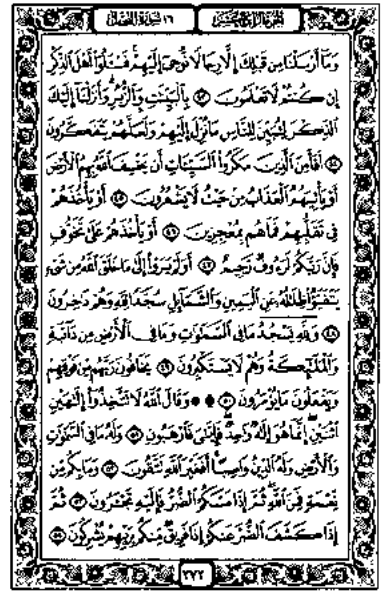 الجزء الرابع عشر ١٦ سورة النحل
وَمَا أَرْسَلْنَا مِن قَبْلِكَ إِلَّا رِجَالًا نُّوحِي إِلَيْهِمْ فَسْـَٔلُوا أَهْلَ الذِّكْرِ
إِن كُنتُمْ لَا تَعْلَمُونَ ٤٣ بِالْبَيِّنَٰتِ وَالزُّبُرِ وَأَنزَلْنَا إِلَيْكَ
الذِّكْرَ لِتُبَيِّنَ لِلنَّاسِ مَا نُزِّلَ إِلَيْهِمْ وَلَعَلَّهُمْ يَتَفَكَّرُونَ
٤٤ أَفَأَمِنَ الَّذِينَ مَكَرُوا السَّيِّـَٔاتِ أَن يَخْسِفَ اللَّهُ بِهِمُ الْأَرْضَ
أَوْ يَأْتِيَهُمُ الْعَذَابُ مِنْ حَيْثُ لَا يَشْعُرُونَ ٤٥ أَوْ يَأْخُذَهُمْ
فِي تَقَلُّبِهِمْ فَمَا هُم بِمُعْجِزِينَ ٤٦ أَوْ يَأْخُذَهُمْ عَلَىٰ تَخَوُّفٍ
فَإِنَّ رَبَّكُمْ لَرَءُوفٌ رَّحِيمٌ ٤٧ أَوَلَمْ يَرَوْا إِلَىٰ مَا خَلَقَ اللَّهُ مِن شَيْءٍ
يَتَفَيَّؤُا ظِلَٰلُهُ عَنِ الْيَمِينِ وَالشَّمَائِلِ سُجَّدًا لِّلَّهِ وَهُمْ دَٰخِرُونَ
٤٨ وَلِلَّهِ يَسْجُدُ مَا فِي السَّمَٰوَٰتِ وَمَا فِي الْأَرْضِ مِن دَابَّةٍ
وَالْمَلَٰئِكَةُ وَهُمْ لَا يَسْتَكْبِرُونَ ٤٩ يَخَافُونَ رَبَّهُم مِّن فَوْقِهِمْ
وَيَفْعَلُونَ مَا يُؤْمَرُونَ ٥٠ وَقَالَ اللَّهُ لَا تَتَّخِذُوا إِلَٰهَيْنِ
اثْنَيْنِ إِنَّمَا هُوَ إِلَٰهٌ وَٰحِدٌ فَإِيَّٰيَ فَارْهَبُونِ ٥١ وَلَهُ مَا فِي السَّمَٰوَٰتِ
وَالْأَرْضِ وَلَهُ الدِّينُ وَاصِبًا أَفَغَيْرَ اللَّهِ تَتَّقُونَ ٥٢ وَمَا بِكُم مِّن
نِّعْمَةٍ فَمِنَ اللَّهِ ثُمَّ إِذَا مَسَّكُمُ الضُّرُّ فَإِلَيْهِ تَجْـَٔرُونَ ٥٣ ثُمَّ
إِذَا كَشَفَ الضُّرَّ عَنكُمْ إِذَا فَرِيقٌ مِّنكُم بِرَبِّهِمْ يُشْرِكُونَ ٥٤
٢٧٢